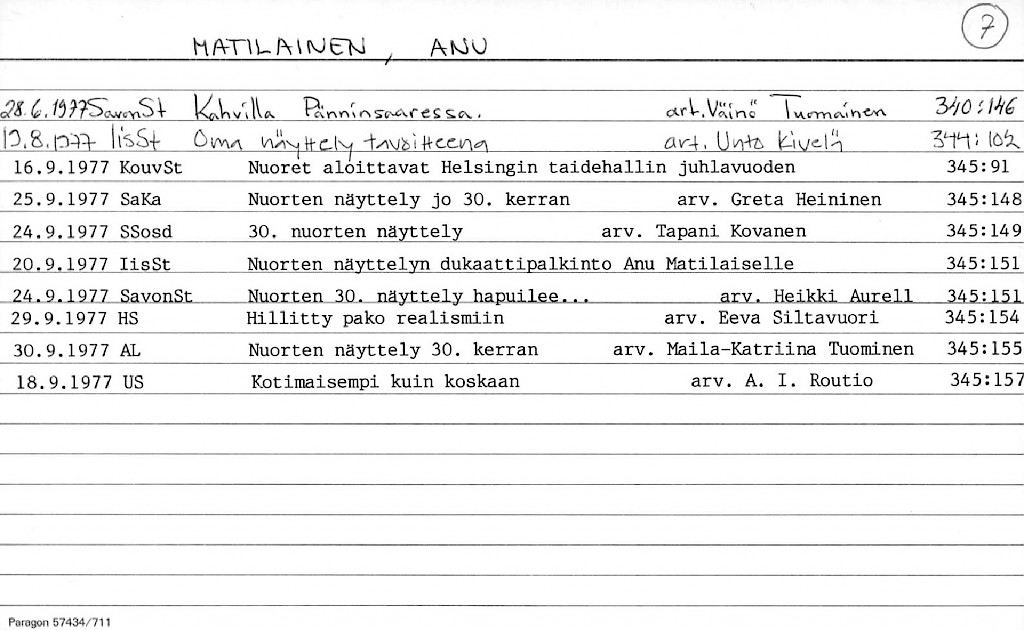 7
MATILAINEN, ANU
28.6.1977 SavonSt Kahvilla Pänninsaaressa. art. Väinö Tuomainen 340:146
19.8.1977 IisSt Oma näyttely tavoitteena art. Unto Kivelä 344:102
16.9.1977 KouvSt Nuoret aloittavat Helsingin taidehallin juhlavuoden 345:91
25.9.1977 SaKa Nuorten näyttely jo 30. kerran arv. Greta Heininen 345:148
24.9.1977 SSosd 30. nuorten näyttely arv. Tapani Kovanen 345:149
20.9.1977 IisSt Nuorten näyttelyn dukaattipalkinto Anu Matilaiselle 345:151
24.9.1977 SavonSt Nuorten 30. näyttely hapuilee... arv. Heikki Aurell 345:151
29.9.1977 HS Hillitty pako realismiin arv. Eeva Siltavuori 345:154
30.9.1977 AL Nuorten näyttely 30. kerran arv. Maila-Katriina Tuominen 345:155
18.9.1977 US Kotimaisempi kuin koskaan arv. A. I. Routio 345:157
Paragon 57434/711